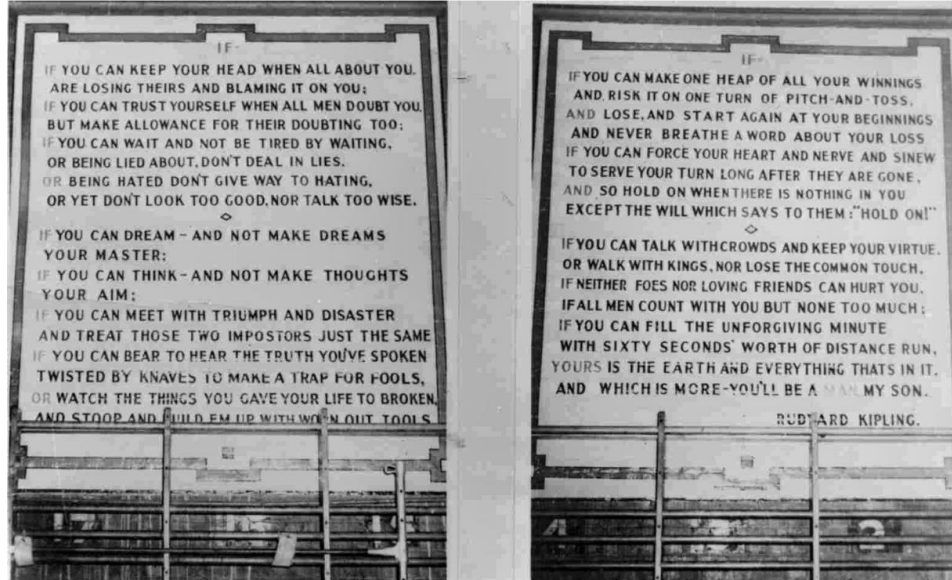 IF-
IF YOU CAN KEEP YOUR HEAD WHEN ALL ABOUT YOU.
ARE LOSING THEIRS AND BLAMING IT ON YOU;
IF YOU CAN TRUST YOURSELF WHEN ALL MEN DOUBT YOU.
BUT MAKE ALLOWANCE FOR THEIR DOUBTING TOO;
IF YOU CAN WAIT AND NOT BE TIRED BY WAITING,
OR BEING LIED ABOUT, DON'T DEAL IN LIES.
OR BEING HATED DON'T GIVE WAY TO HATING,
OR YET DON'T LOOK TOO GOOD, NOR TALK TOO WISE.
IF YOU CAN DREAM - AND NOT MAKE DREAMS
YOUR MASTER;
IF YOU CAN THINK - AND NOT MAKE THOUGHTS
YOUR AIM;
IF YOU CAN MEET WITH TRIUMPH AND DISASTER
AND TREAT THOSE TWO IMPOSTORS JUST THE SAME
IF YOU CAN BEAR TO HEAR THE TRUTH YOU'VE SPOKEN
TWISTED BY KNAVES TO MAKE A TRAP FOR FOOLS,
OR WATCH THE THINGS YOU GAVE YOUR LIFE TO BROKEN,
AND STOOP AND BUILD EM UP WITH WORN OUT TOOLS
IF-
IF YOU CAN MAKE ONE HEAP OF ALL YOUR WINNINGS
AND RISK IT ON ONE TURN OF PITCH-AND-TOSS,
AND LOSE, AND START AGAIN AT YOUR BEGINNINGS
AND NEVER BREATHE A WORD ABOUT YOUR LOSS
IF YOU CAN FORCE YOUR HEART AND NERVE AND SINEW
TO SERVE YOUR TURN LONG AFTER THEY ARE GONE,
AND SO HOLD ON WHEN THERE IS NOTHING IN YOU
EXCEPT THE WILL WHICH SAYS TO THEM: "HOLD ON!"
IF YOU CAN TALK WITH CROWDS AND KEEP YOUR VIRTUE,
OR WALK WITH KINGS, NOR LOSE THE COMMON TOUCH,
IF NEITHER FOES NOR LOVING FRIENDS CAN HURT YOU,
IF ALL MEN COUNT WITH YOU BUT NONE TOO MUCH;
IF YOU CAN FILL THE UNFORGIVING MINUTE
WITH SIXTY SECONDS' WORTH OF DISTANCE RUN,
YOURS IS THE EARTH AND EVERYTHING THATS IN IT,
AND WHICH IS MORE-YOU'LL BE A MAN MY SON.
RUDYARD KIPLING.